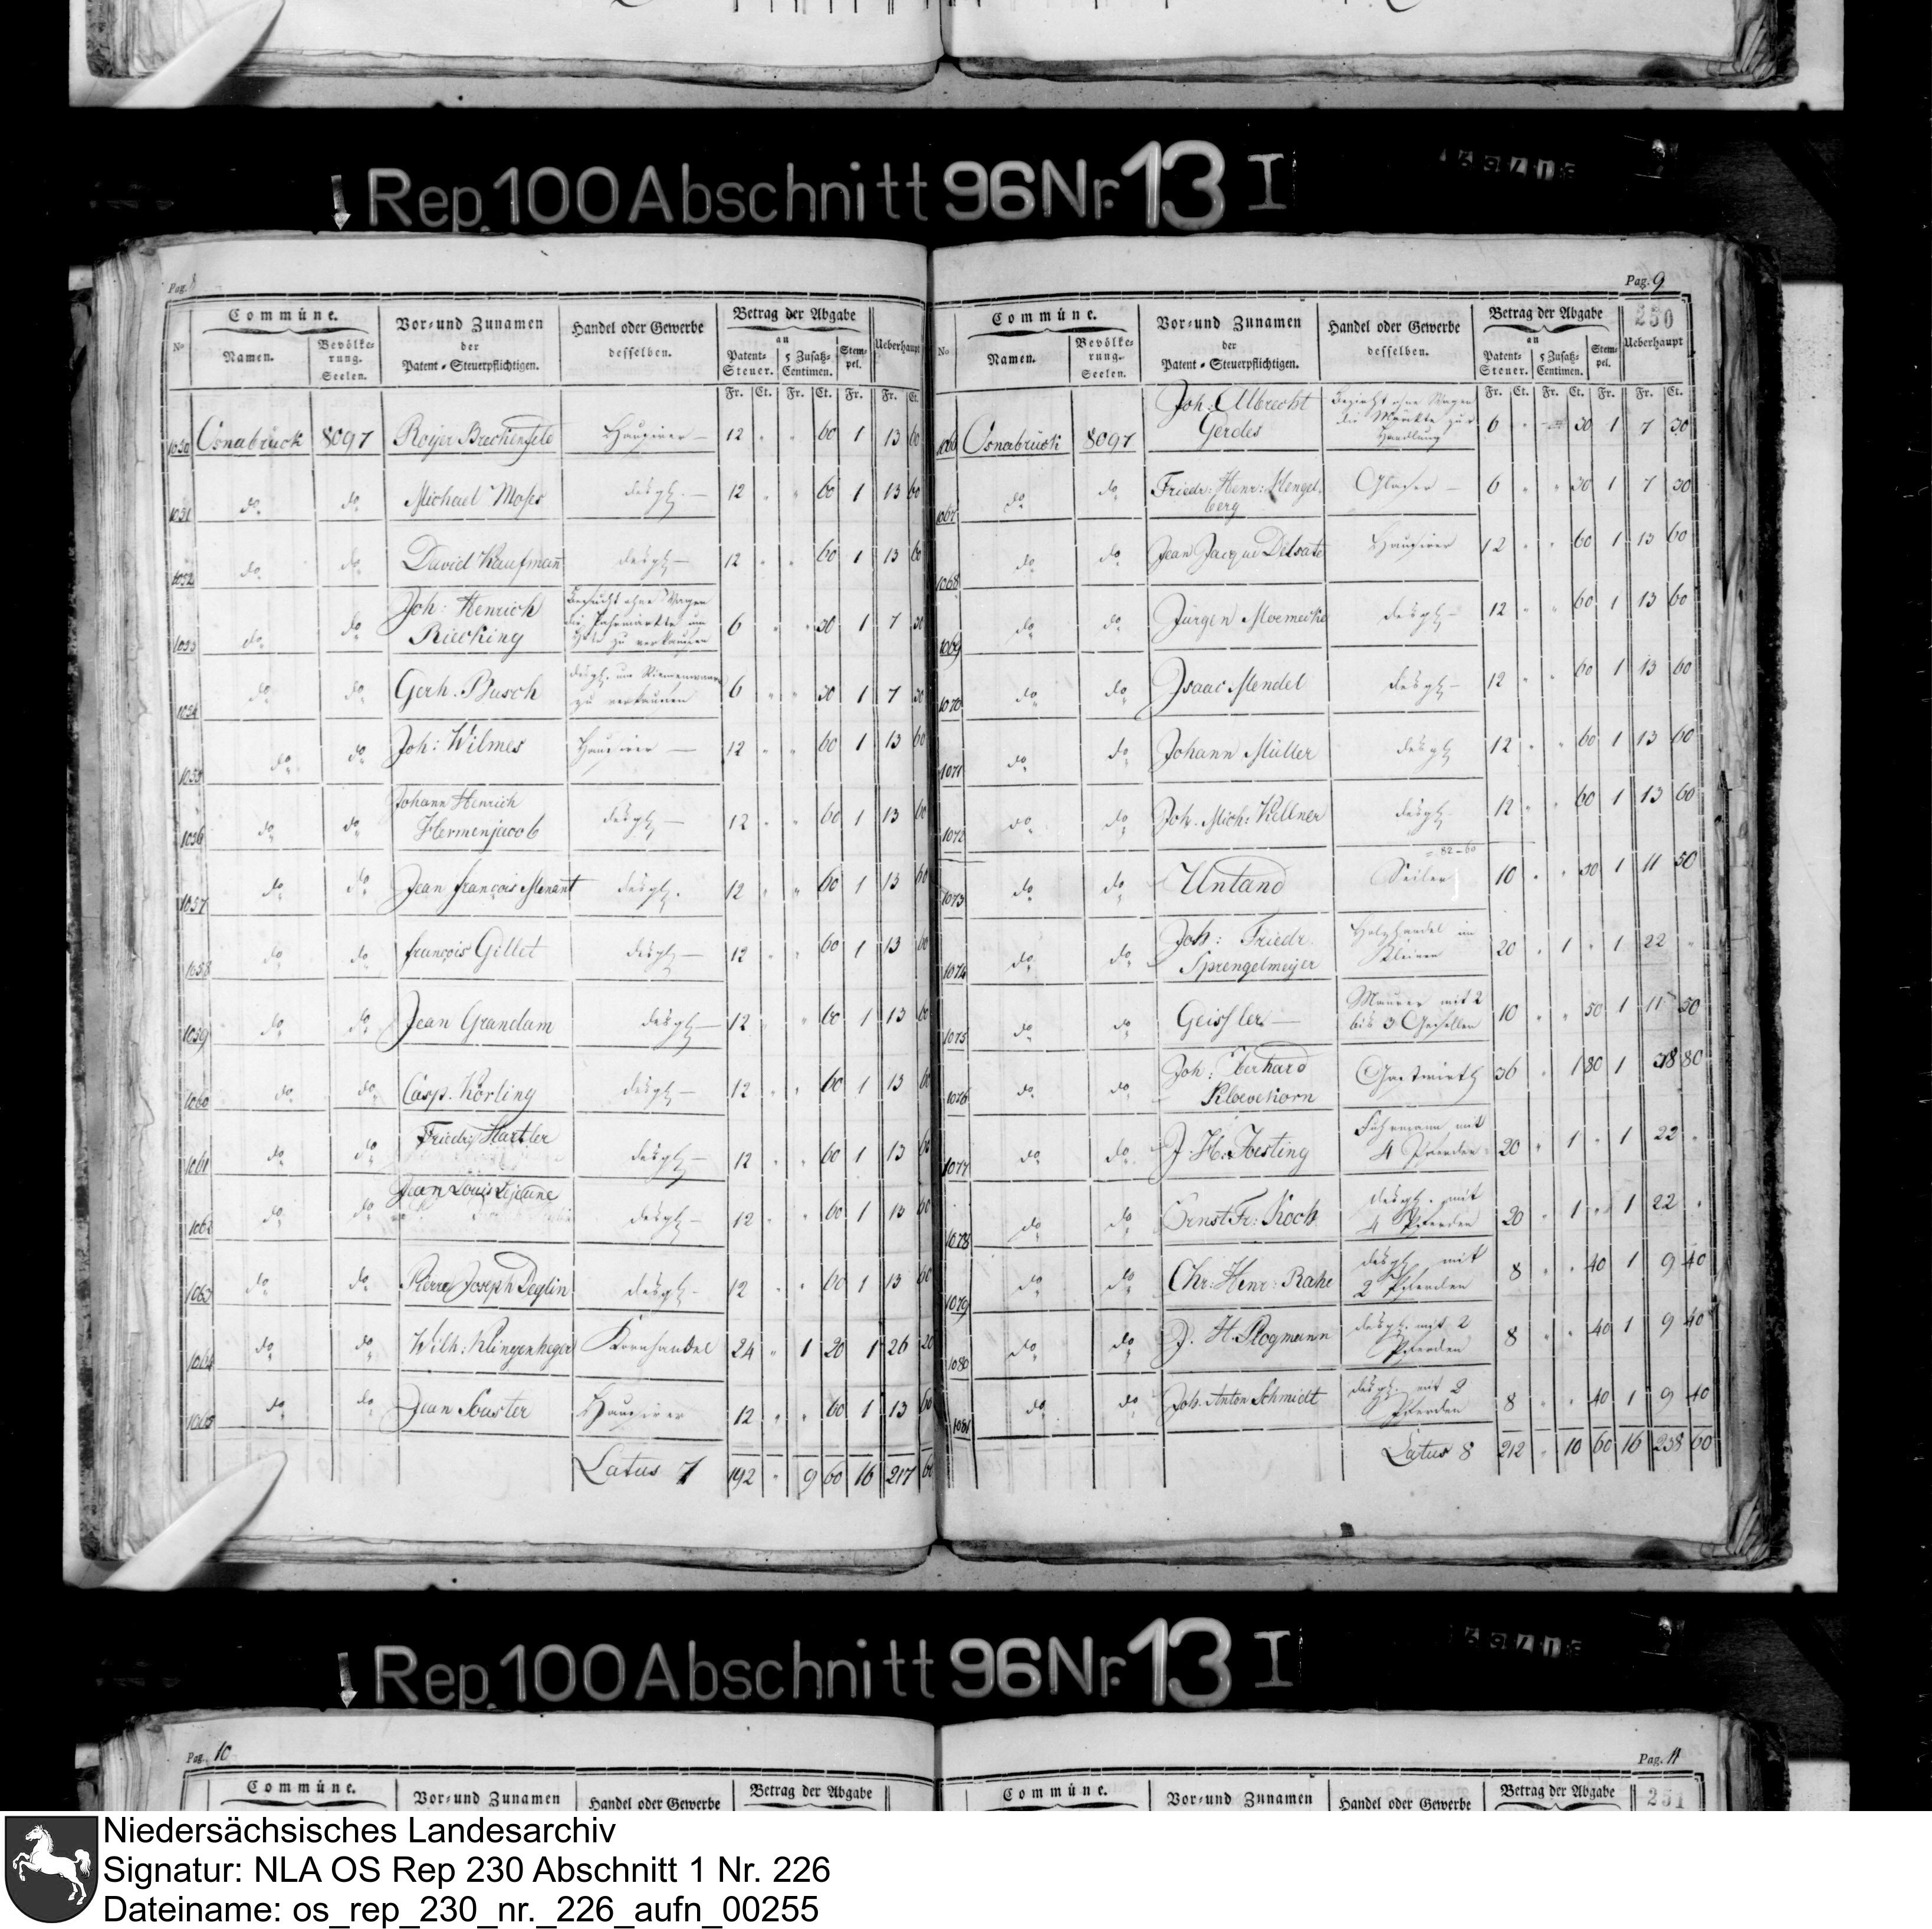 Rep. 100 Abschnitt 96 Nr. 13 I
Pag. 8
No
Commüne.
Namen.
Bevölke-
rung.
Seelen.
Vor- und Zunamen
der
Patent-Steuerpflichtigen.
Handel oder Gewerbe
desselben.
Betrag der Abgabe
an
Patent-
Steuer.
5 Zusatz-
Centimen.
Stem-
pel.
Ueberhaupt
Fr. Ct. Fr. Ct. Fr. Fr. Ct.
1050 Osnabrück 8097 Hausirer 12 " " 60 1 13 60
1051 do do Michael Moses desgl. 12 " " 60 1 13 60
1052 do do David Kaufmann desgl. 12 " " 60 1 13 60
1053 do do Joh: Henrich
Riecking
Besucht ohne Wagen
die Jahrmärkte um
zu verkaufen
6 " " 30 1 7 30
1054 do do Gerh. Busch desgl. um
zu verkaufen
6 " " 30 1 7 30
1055 do do Joh: Wilmes Hausirer 12 " " 60 1 13 60
1056 do do Johann Henrich
Hermenjacob
desgl. 12 " " 60 1 13 60
1057 do do Jean françois Menant desgl. 12 " " 60 1 13 60
1058 do do françois Gillet desgl. 12 " " 60 1 13 60
1059 do do Jean Grandam desgl. 12 " " 60 1 13 60
1060 do do Casp. Körling desgl. 12 " " 60 1 13 60
1061 do do Friedr. Hartler desgl. 12 " " 60 1 13 60
1062 do do Jean Louis Lejeune desgl. 12 " " 60 1 13 60
1063 do do Pierre Joseph Deglin desgl. 12 " " 60 1 13 60
1064 do do Wilh: Kornhandel 24 " 1 20 1 26 20
1065 do do Jean Hausirer 12 " " 60 1 13 60
Latus 7 192 " 9 60 16 217 60
Pag. 9
250
No
Commüne.
Namen.
Bevölke-
rung.
Seelen.
Vor- und Zunamen
der
Patent-Steuerpflichtigen.
Handel oder Gewerbe
desselben.
Betrag der Abgabe
an
Patent-
Steuer.
5 Zusatz-
Centimen.
Stem-
pel.
Ueberhaupt
Fr. Ct. Fr. Ct. Fr. Fr. Ct.
1066 Osnabrück 8097 Joh: Albrecht
Gerdes
Bezieht ohne Wagen
die Märkte zur
Handlung
6 " 30 1 7 30
1067 do do Friedr: Henr: Hengel-
berg
Glaser 6 " " 30 1 7 30
1068 do do Jean Jacque Delsate Hausirer 12 " " 60 1 13 60
1069 do do Jürgen Moemecke desgl. 12 " " 60 1 13 60
1070 do do Isaac Mendel desgl. 12 " " 60 1 13 60
1071 do do Johann Müller desgl. 12 " " 60 1 13 60
1072 do do Joh. Mich: Kellner desgl. 12 " " 60 1 13 60
= 82-60
1073 do do Untand Seiler 10 " " 50 1 11 50
1074 do do Joh: Friedr.
Sprengelmeyer
Holzhandel im
Kleinen
20 " 1 " 1 22 "
1075 do do Geissler Maurer mit 2
bis 3 Gesellen
10 " " 50 1 11 50
1076 do do Joh: Eberhard
Kloevekorn
Gastwirth 36 " 1 80 1 38 80
1077 do do J. H. Jesting Fuhrmann mit
4 Pferden
20 " 1 " 1 22 "
1078 do do Ernst Fr: Koch desgl. mit
4 Pferden
20 " 1 " 1 22 "
1079 do do Chr: Henr: Rahe desgl. mit
2 Pferden
8 " " 40 1 9 40
1080 do do J. H. Plogmann desgl. mit 2
Pferden
8 " " 40 1 9 40
1081 do do Joh. Anton Schmidt desgl. mit 2
Pferden
8 " " 40 1 9 40
Latus 8 212 " 10 60 16 238 60
Rep. 100 Abschnitt 96 Nr. 13 I
Pag. 10
Commüne.
Vor- und Zunamen
Handel oder Gewerbe
Betrag der Abgabe
Pag. 11
Commüne.
Vor- und Zunamen
Handel oder Gewerbe
Betrag der Abgabe
251
Niedersächsisches Landesarchiv
Signatur: NLA OS Rep 230 Abschnitt 1 Nr. 226
Dateiname: os_rep_230_nr._226_aufn_00255